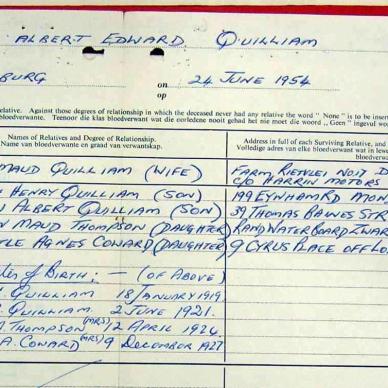 ALBERT EDWARD QUILLIAM
BURG on 24 JUNE 1954
op
relative. Against those degrees of relationship in which the deceased never had any relative the word "None" is to be inser
bloedverwante. Teenoor die klas bloedverwant wat die oorledene nooit gehad het nie moet die woord „Geen" ingevul wor
Names of Relatives and Degree of Relationship.
Name van bloedverwante en graad van verwantskap.
Address in full of each Surviving Relative, and
Volledige adres van elke bloedverwant wat in lewe
MAUD QUILLIAM (WIFE) FARM RIETVLEI NOIT D
C/O HARRIN MOTORS
HENRY QUILLIAM (SON) 199 EYNHAM RD MON
ALBERT QUILLIAM (SON) 39 THOMAS BAINES STR
MAUD THOMPSON (DAUGHTER) RAND WATER BOARD ZWAR
AGNES COWARD (DAUGHTER) 9 CYRUS PLACE OFF LO
of Birth: — (OF ABOVE)
QUILLIAM 18 JANUARY 1919.
QUILLIAM 2 JUNE 1921.
THOMPSON (MRS) 2 APRIL 1924.
A. COWARD (MRS) 9 DECEMBER 1927